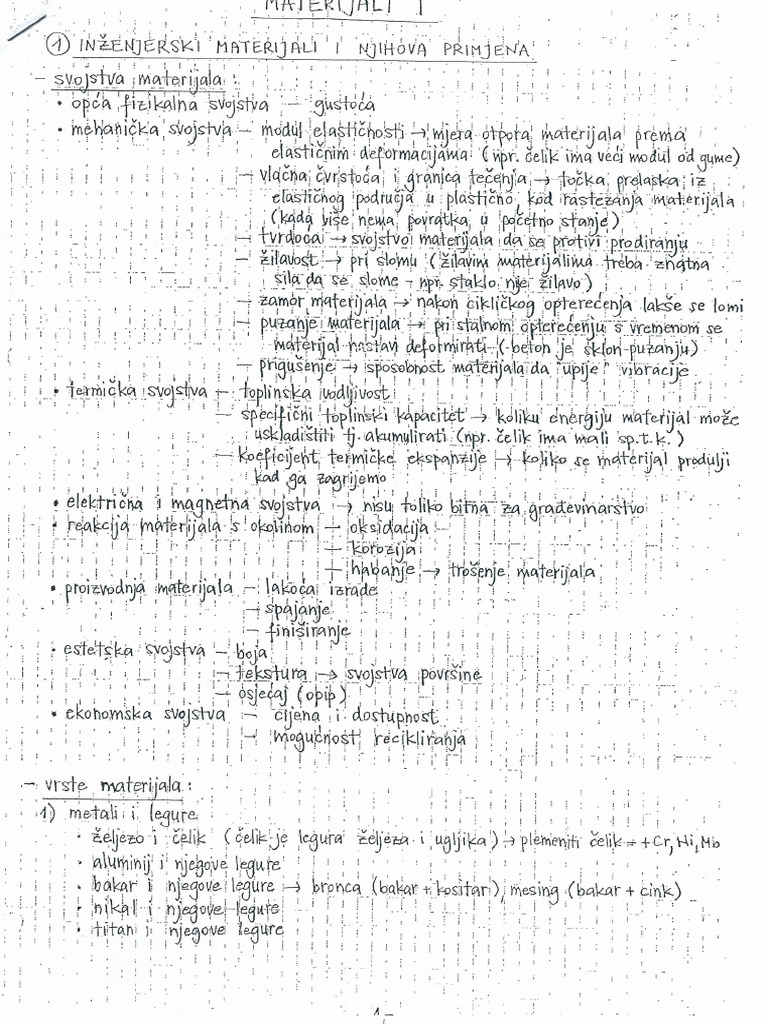 MATERIJALI 1
① INŽENJERSKI MATERIJALI I NJIHOVA PRIMJENA
- svojstva materijala:
• opća fizikalna svojstva - gustoća
• mehanička svojstva - modul elastičnosti → mjera otpora materijala prema
elastičnim deformacijama (npr. čelik ima veći modul od gume)
- vlačna čvrstoća i granica tečenja → točka prelaska iz
elastičnog područja u plastično kod rastezanja materijala
(kada više nema povratka u početno stanje)
- tvrdoća → svojstvo materijala da se protivi prodiranju
- žilavost → pri slomu (žilavim materijalima treba znatna
sila da se slome - npr. staklo nije žilavo)
- zamor materijala → nakon cikličkog opterećenja lakše se lomi
- puzanje materijala → pri stalnom opterećenju s vremenom se
materijal nastavi deformirati (beton je sklon puzanju)
- prigušenje → sposobnost materijala da "upije" vibracije
• termička svojstva - toplinska vodljivost
- specifični toplinski kapacitet → koliku energiju materijal može
uskladištiti tj. akumulirati (npr. čelik ima mali sp.t.k.)
- koeficijent termičke ekspanzije → koliko se materijal produlji
kad ga zagrijemo
• električna i magnetna svojstva → nisu toliko bitna za građevinarstvo
• reakcija materijala s okolinom - oksidacija
- korozija
- habanje → trošenje materijala
• proizvodnja materijala - lakoća izrade
- spajanje
- finiširanje
• estetska svojstva - boja
- tekstura → svojstva površine
- osjećaj (opip)
• ekonomska svojstva - cijena i dostupnost
- mogućnost recikliranja
- vrste materijala:
1) metali i legure
• željezo i čelik (čelik je legura željeza i ugljika) → plemeniti čelik = + Cr, Ni, Mb
• aluminij i njegove legure
• bakar i njegove legure → bronca (bakar + kositar), mesing (bakar + cink)
• nikal i njegove legure
• titan i njegove legure
1